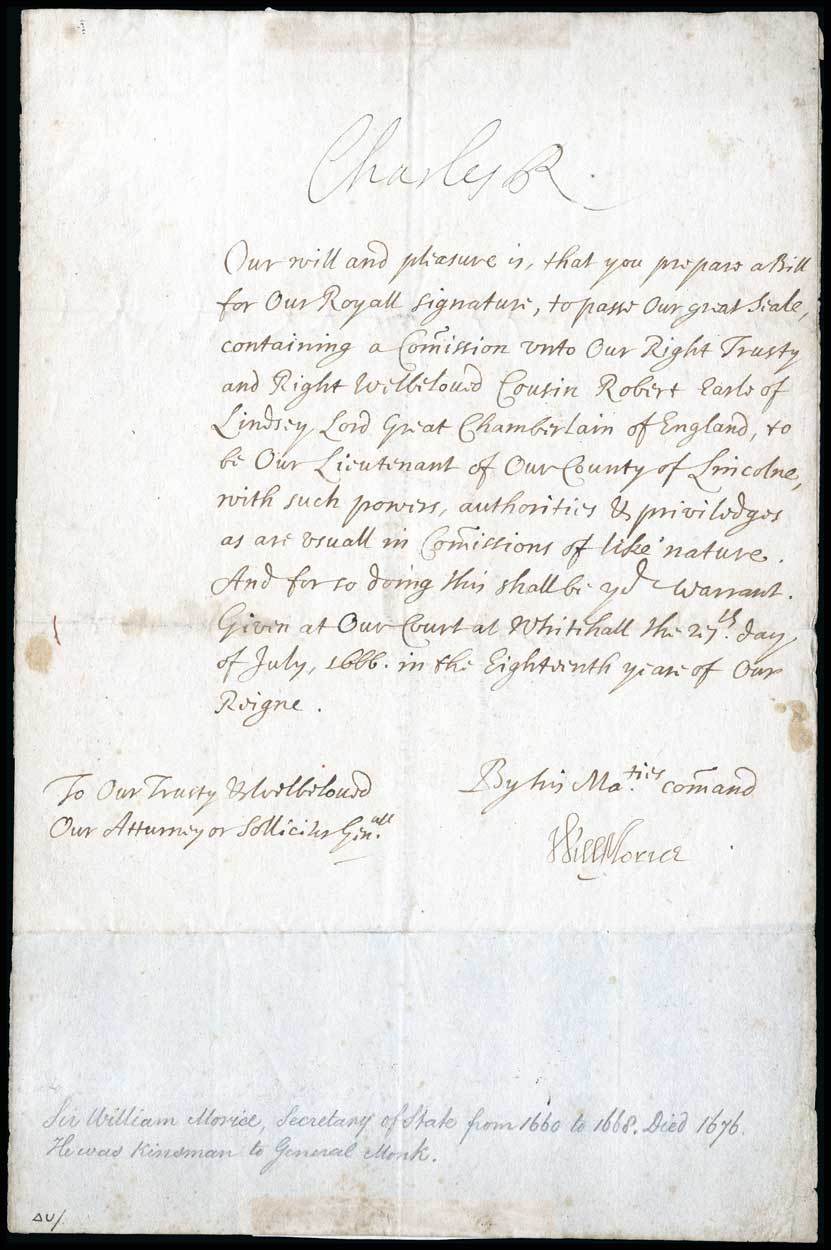 Charles R.
Our will and pleasure is, that you prepare a Bill
for Our Royall signature, to passe Our great Seale,
containing a Com̄ission vnto Our Right Trusty
and Right Welbeloued Cousin Robert Earle of
Lindsey Lord Great Chamberlain of England, to
be Our Lieutenant of Our County of Lincolne,
with such powers, authorities & priviledges
as are vsuall in Com̄issions of like nature.
And for so doing this shall be yor warrant.
Given at Our Court at Whitehall the 27th. day
of July, 1666. in the Eighteenth yeare of Our
Reigne.
To Our Trusty & Welbeloued
Our Atturney or Sollicitr Gen.all
By his Ma.ties com̄and
Will Morice
Sir William Morice, Secretary of State from 1660 to 1668. Died 1676.
He was Kinsman to General Monk.